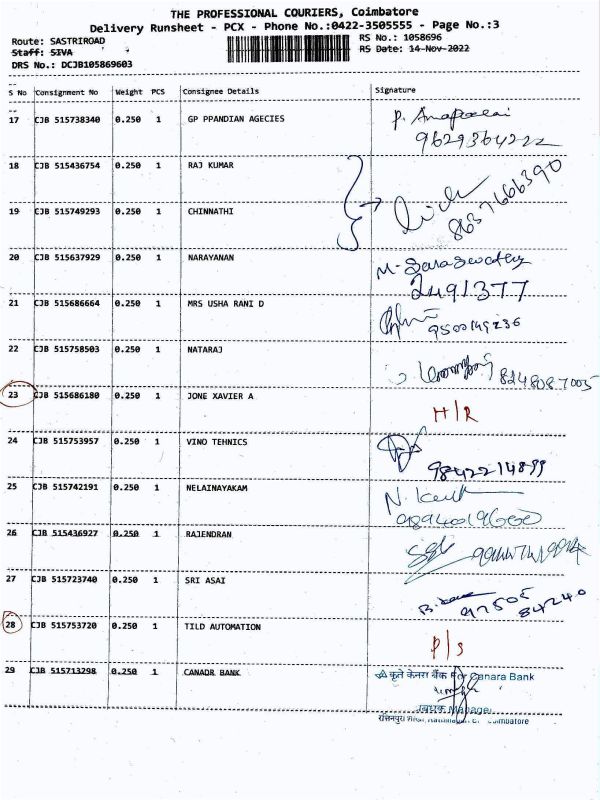 THE PROFESSIONAL COURIERS, Coimbatore
Delivery Runsheet - PCX - Phone No.:0422-3505555 - Page No.:3
Route: SASTRIROAD
RS No.: 1058696
Staff: SIVA
RS Date: 14-Nov-2022
DRS No.: DCJB105869603
S No Consignment No Weight PCS Consignee Details Signature
17 CJB 515738340 0.250 1 GP PPANDIAN AGECIES
9629364222
18 CJB 515436754 0.250 1 RAJ KUMAR
8637666390
19 CJB 515749293 0.250 1 CHINNATHI
20 CJB 515637929 0.250 1 NARAYANAN M. Saraswathy
2491377
21 CJB 515686664 0.250 1 MRS USHA RANI D
9500149236
22 CJB 515758503 0.250 1 NATARAJ
8248087005
23 CJB 515686180 0.250 1 JONE XAVIER A H/R
24 CJB 515753957 0.250 1 VINO TEHNICS
9842214899
25 CJB 515742191 0.250 1 NELAINAYAKAM
26 CJB 515436927 0.250 1 RAJENDRAN
27 CJB 515723740 0.250 1 SRI ASAI
97505
84240
28 CJB 515753720 0.250 1 TILD AUTOMATION P/S
29 CJB 515713298 0.250 1 CANADR BANK कृते केनरा बैंक For Canara Bank
Manager